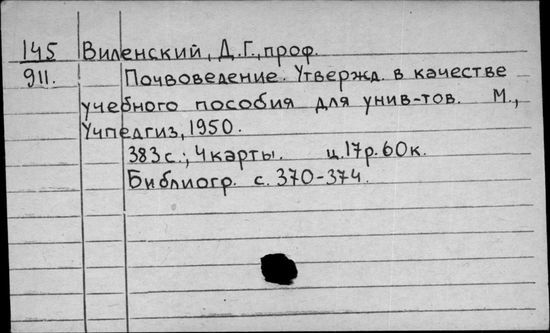 145 Виленский, Д.Г., проф.
911. Почвоведение. Утвержд. в качестве
учебного пособия для унив-тов. М.,
Учпедгиз, 1950.
383 с.; 4 карты. ц. 17 р. 60 к.
Библиогр. с. 370-374.